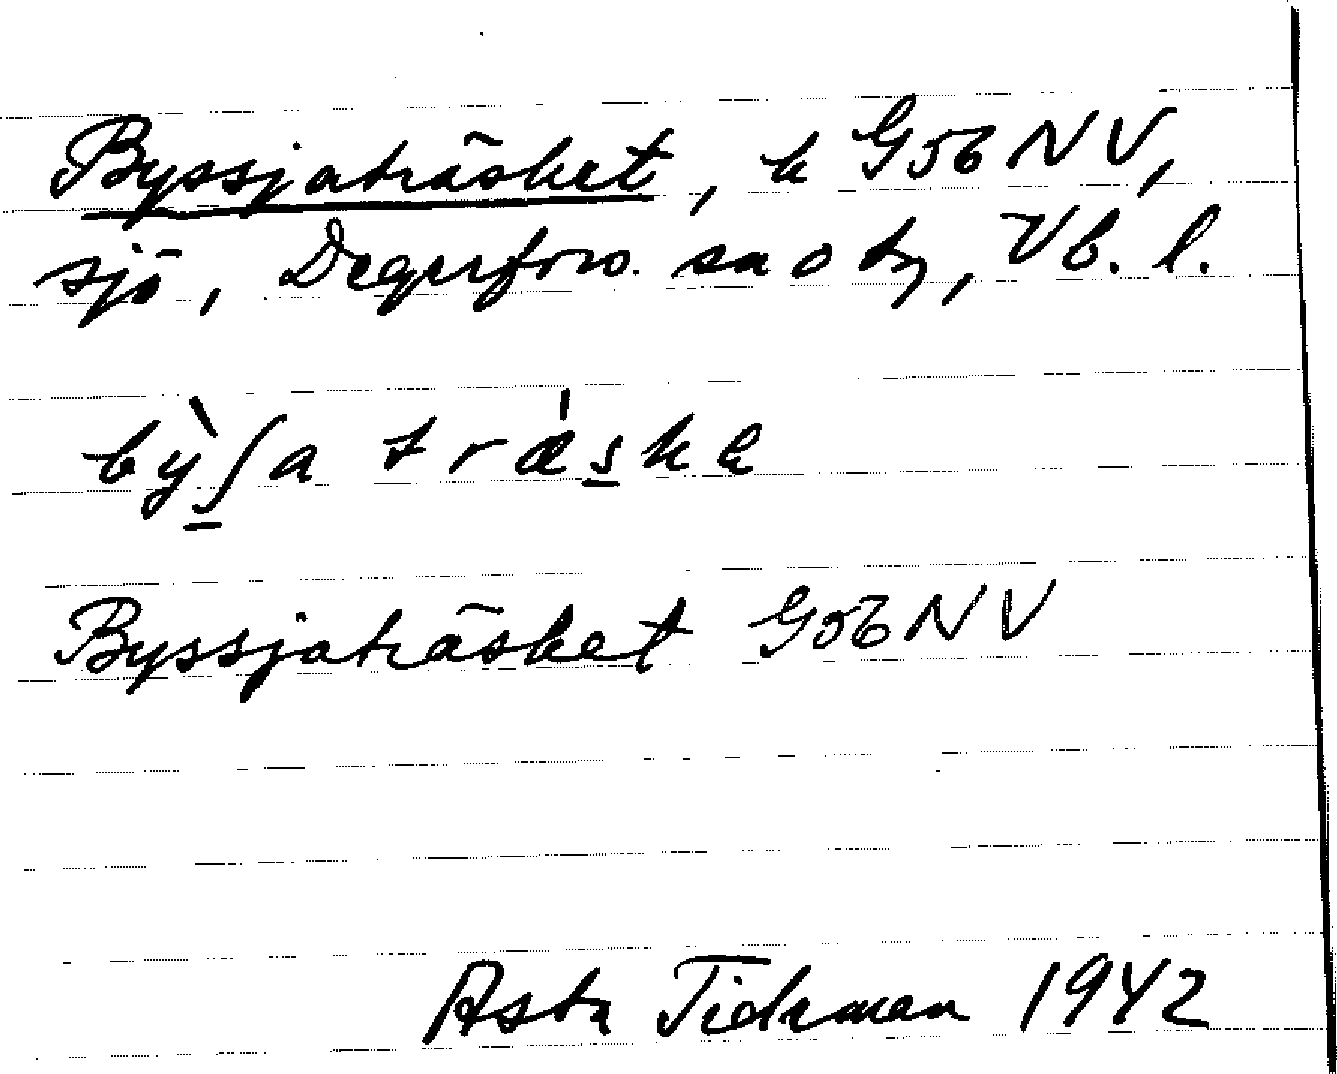 Byssjaträsket, k G56NV,
sjö, Degerfors sn o tg, Vb. l.
bỳʃa tráska
Byssjaträsket G56NV
Asta Tideman 1942